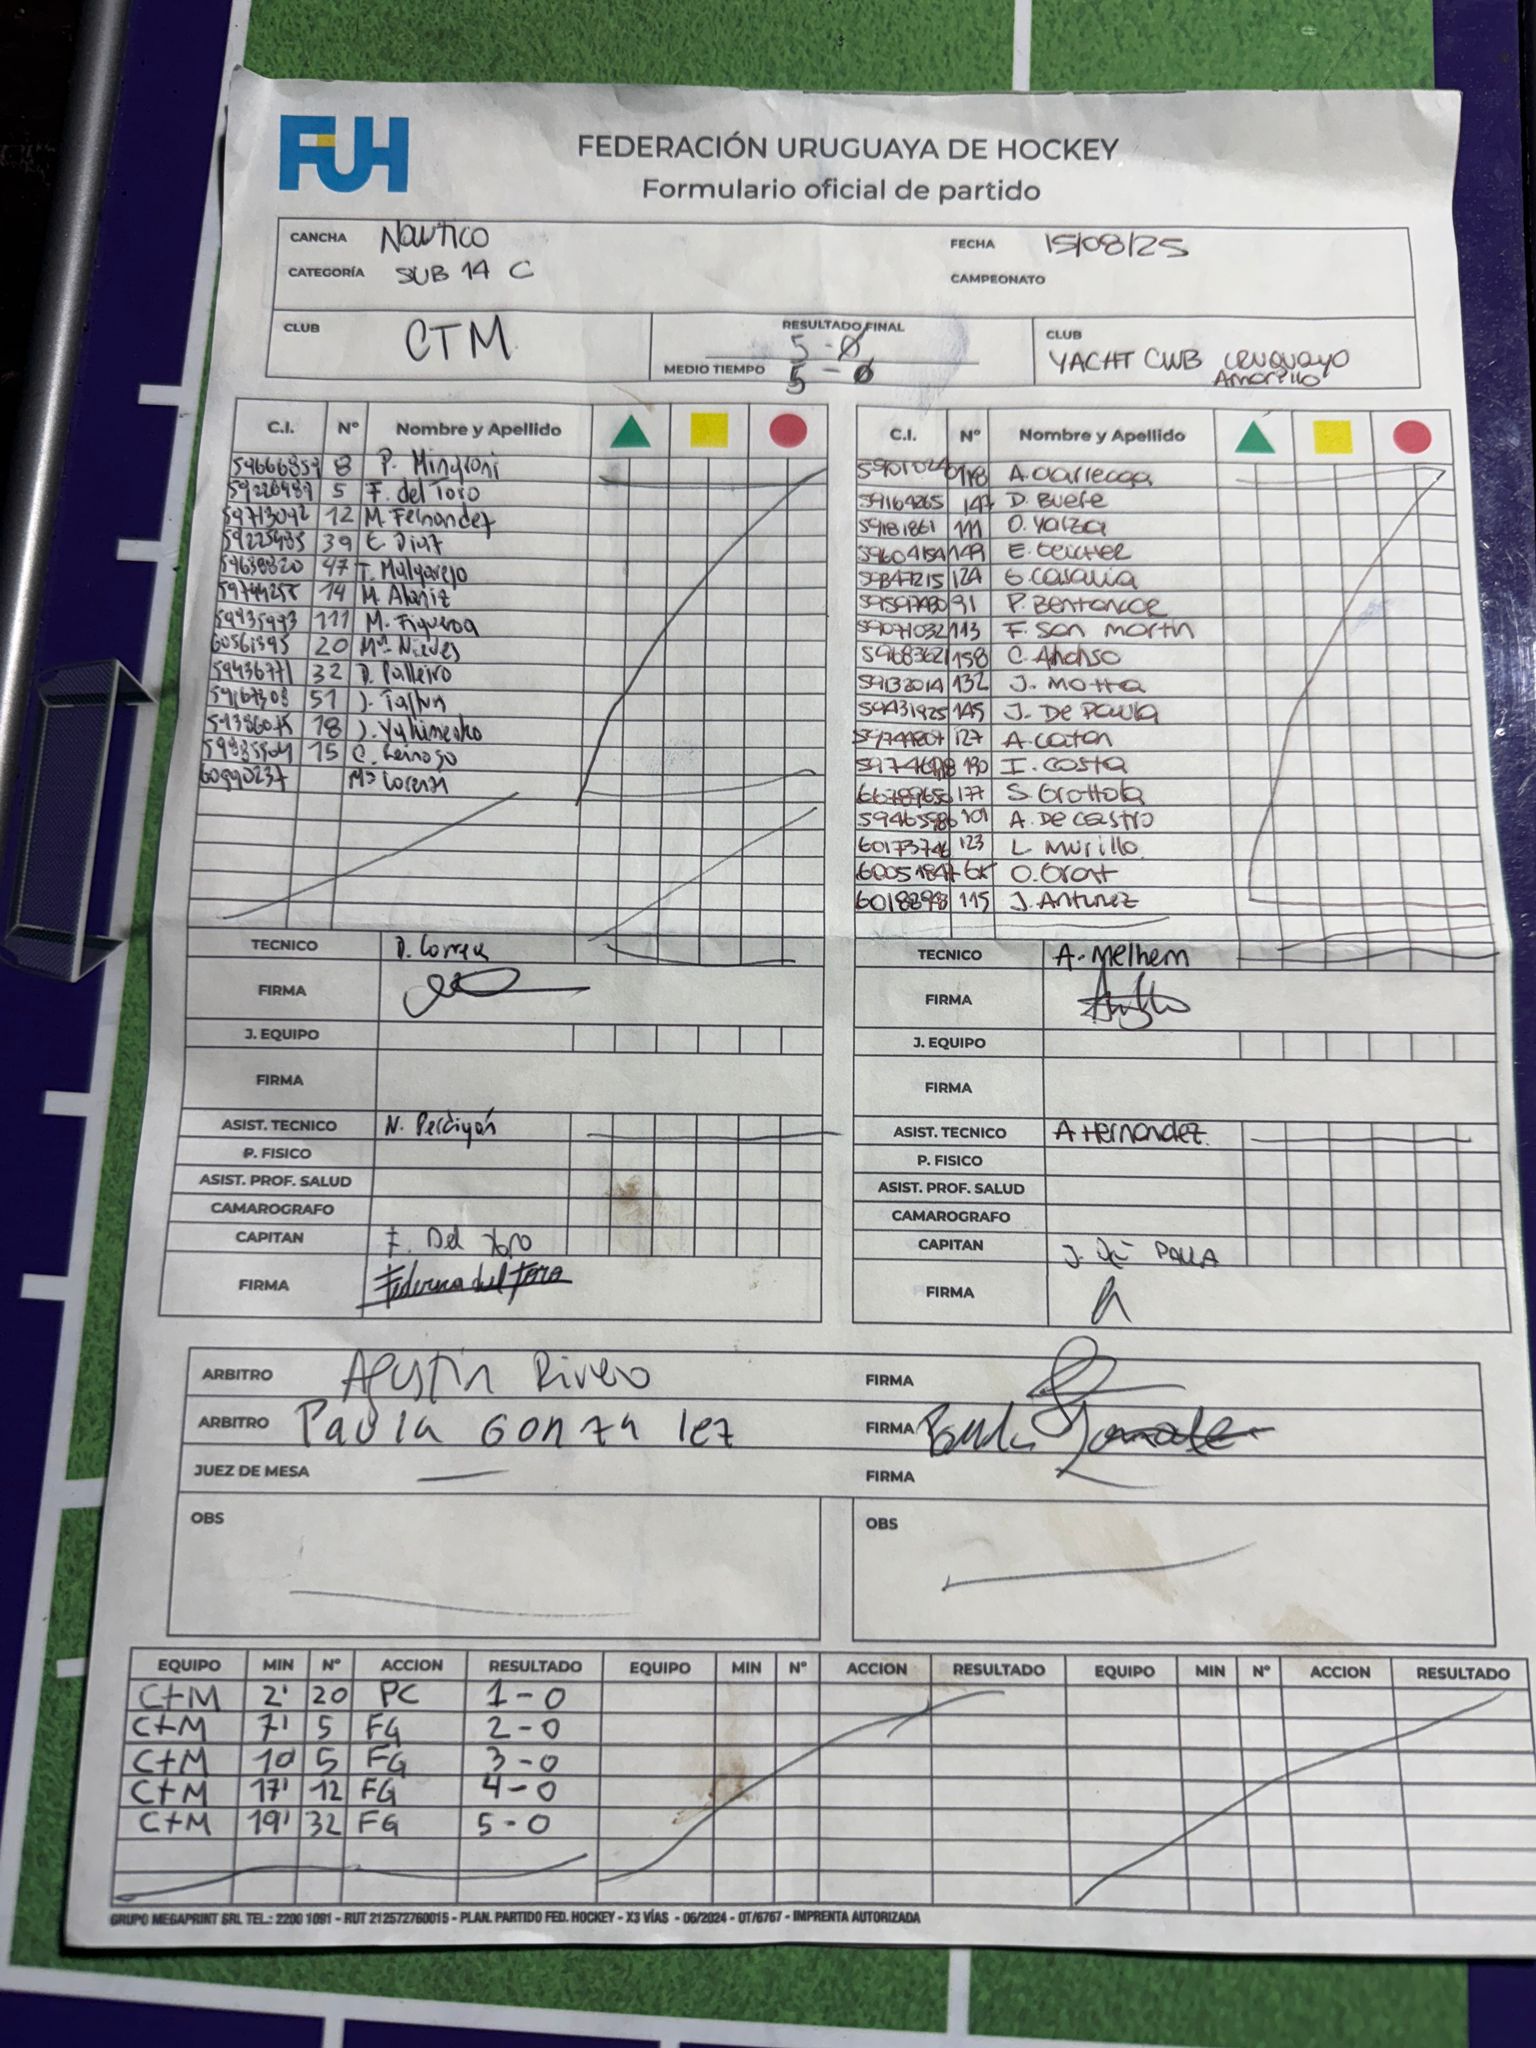 FUH
FEDERACIÓN URUGUAYA DE HOCKEY
Formulario oficial de partido
CANCHA Nautico FECHA 15/08/25
CATEGORÍA SUB 14 C CAMPEONATO
CLUB CTM RESULTADO FINAL 5-0 CLUB YACHT CLUB URUGUAYO Amarillo
MEDIO TIEMPO 5-0
C.I. Nº Nombre y Apellido C.I. Nº Nombre y Apellido
8 P. Mingroni A.
5 F. del Toro 59164265 147 D. Buere
12 M. Fernandez 59181861 111 O. Yarza
39 E. Diaz 59604154 149 E.
47 T. Mulgarejo 59847215 124 G. Casavia
14 M. Alaniz 91 P. Bentancor
111 M. Figueroa 59071032 113 F. San Martin
60561395 20 Mª Nieves 59683621 158 C. Ahonso
59436771 32 D. Palleiro 59132014 132 J. Motta
59167308 51 J. 59431925 145 J. De Paula
18 J. Yuhimenko 127 A. Catan
15 C. Reinoso 130 I. Costa
60990237 Mª Lorenzi 177 S. Grottola
A. De Castro
60173746 123 L. Murillo
O. Grant
115 J. Antunez
TECNICO D. Correa TECNICO A. Melhem
FIRMA FIRMA
J. EQUIPO J. EQUIPO
FIRMA FIRMA
ASIST. TECNICO N. Perciyón ASIST. TECNICO A Hernandez.
P. FISICO P. FISICO
ASIST. PROF. SALUD ASIST. PROF. SALUD
CAMAROGRAFO CAMAROGRAFO
CAPITAN F. Del Toro CAPITAN J. De PAULA
FIRMA Federica del Toro FIRMA
ARBITRO Agustin Rivero FIRMA
ARBITRO Paula Gonzalez FIRMA Paula Gonzalez
JUEZ DE MESA FIRMA
OBS OBS
EQUIPO MIN Nº ACCION RESULTADO EQUIPO MIN Nº ACCION RESULTADO EQUIPO MIN Nº ACCION RESULTADO
CTM 2' 20 PC 1-0
CTM 7' 5 FG 2-0
CTM 10' 5 FG 3-0
CTM 17' 12 FG 4-0
CTM 19' 32 FG 5-0
GRUPO MEGAPRINT SRL TEL.: 2200 1091 - RUT 212572760015 - PLAN. PARTIDO FED. HOCKEY - X3 VÍAS - 06/2024 - OT/6767 - IMPRENTA AUTORIZADA